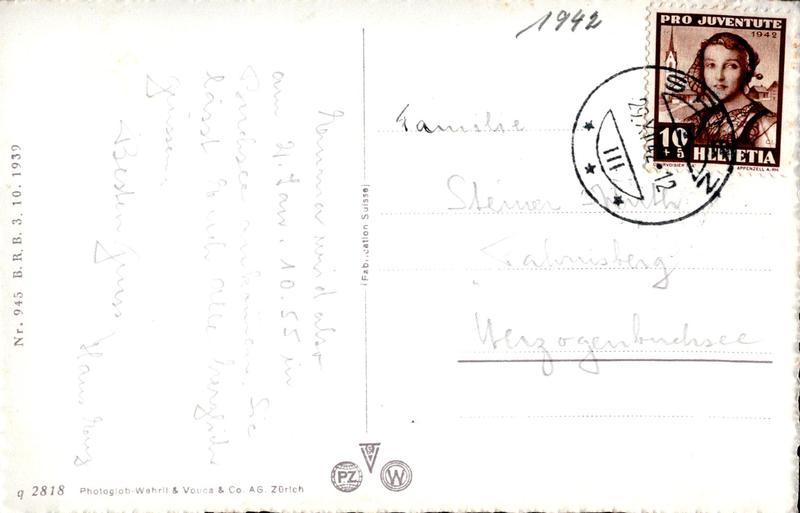 1942
PRO JUVENTUTE
1942
10
+5
HELVETIA
COURVOISIER
APPENZELL A.RH.
III
Familie
Steiner
Herzogenbuchsee
wird also
am 4. Jan. 10.55 in
ankommen. Sie
lässt Euch alle herzlich
grüssen.
Besten Gruss
Hans
(Fabrication Suisse)
Nr. 945 B. R. B. 3. 10. 1939
q 2818 Photoglob-Wehrli & Vouga & Co. AG. Zürich
PZ
W